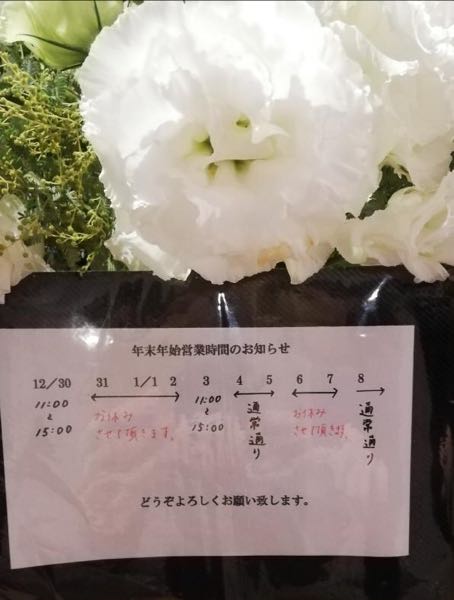 年末年始営業時間のお知らせ
12／30 31 1／1 2 3 4 5 6 7 8
11:00 と 15:00
お休み
させて頂きます。
11:00 と 15:00
通常通り
お休み
させて頂きます。
通常通り
どうぞよろしくお願い致します。